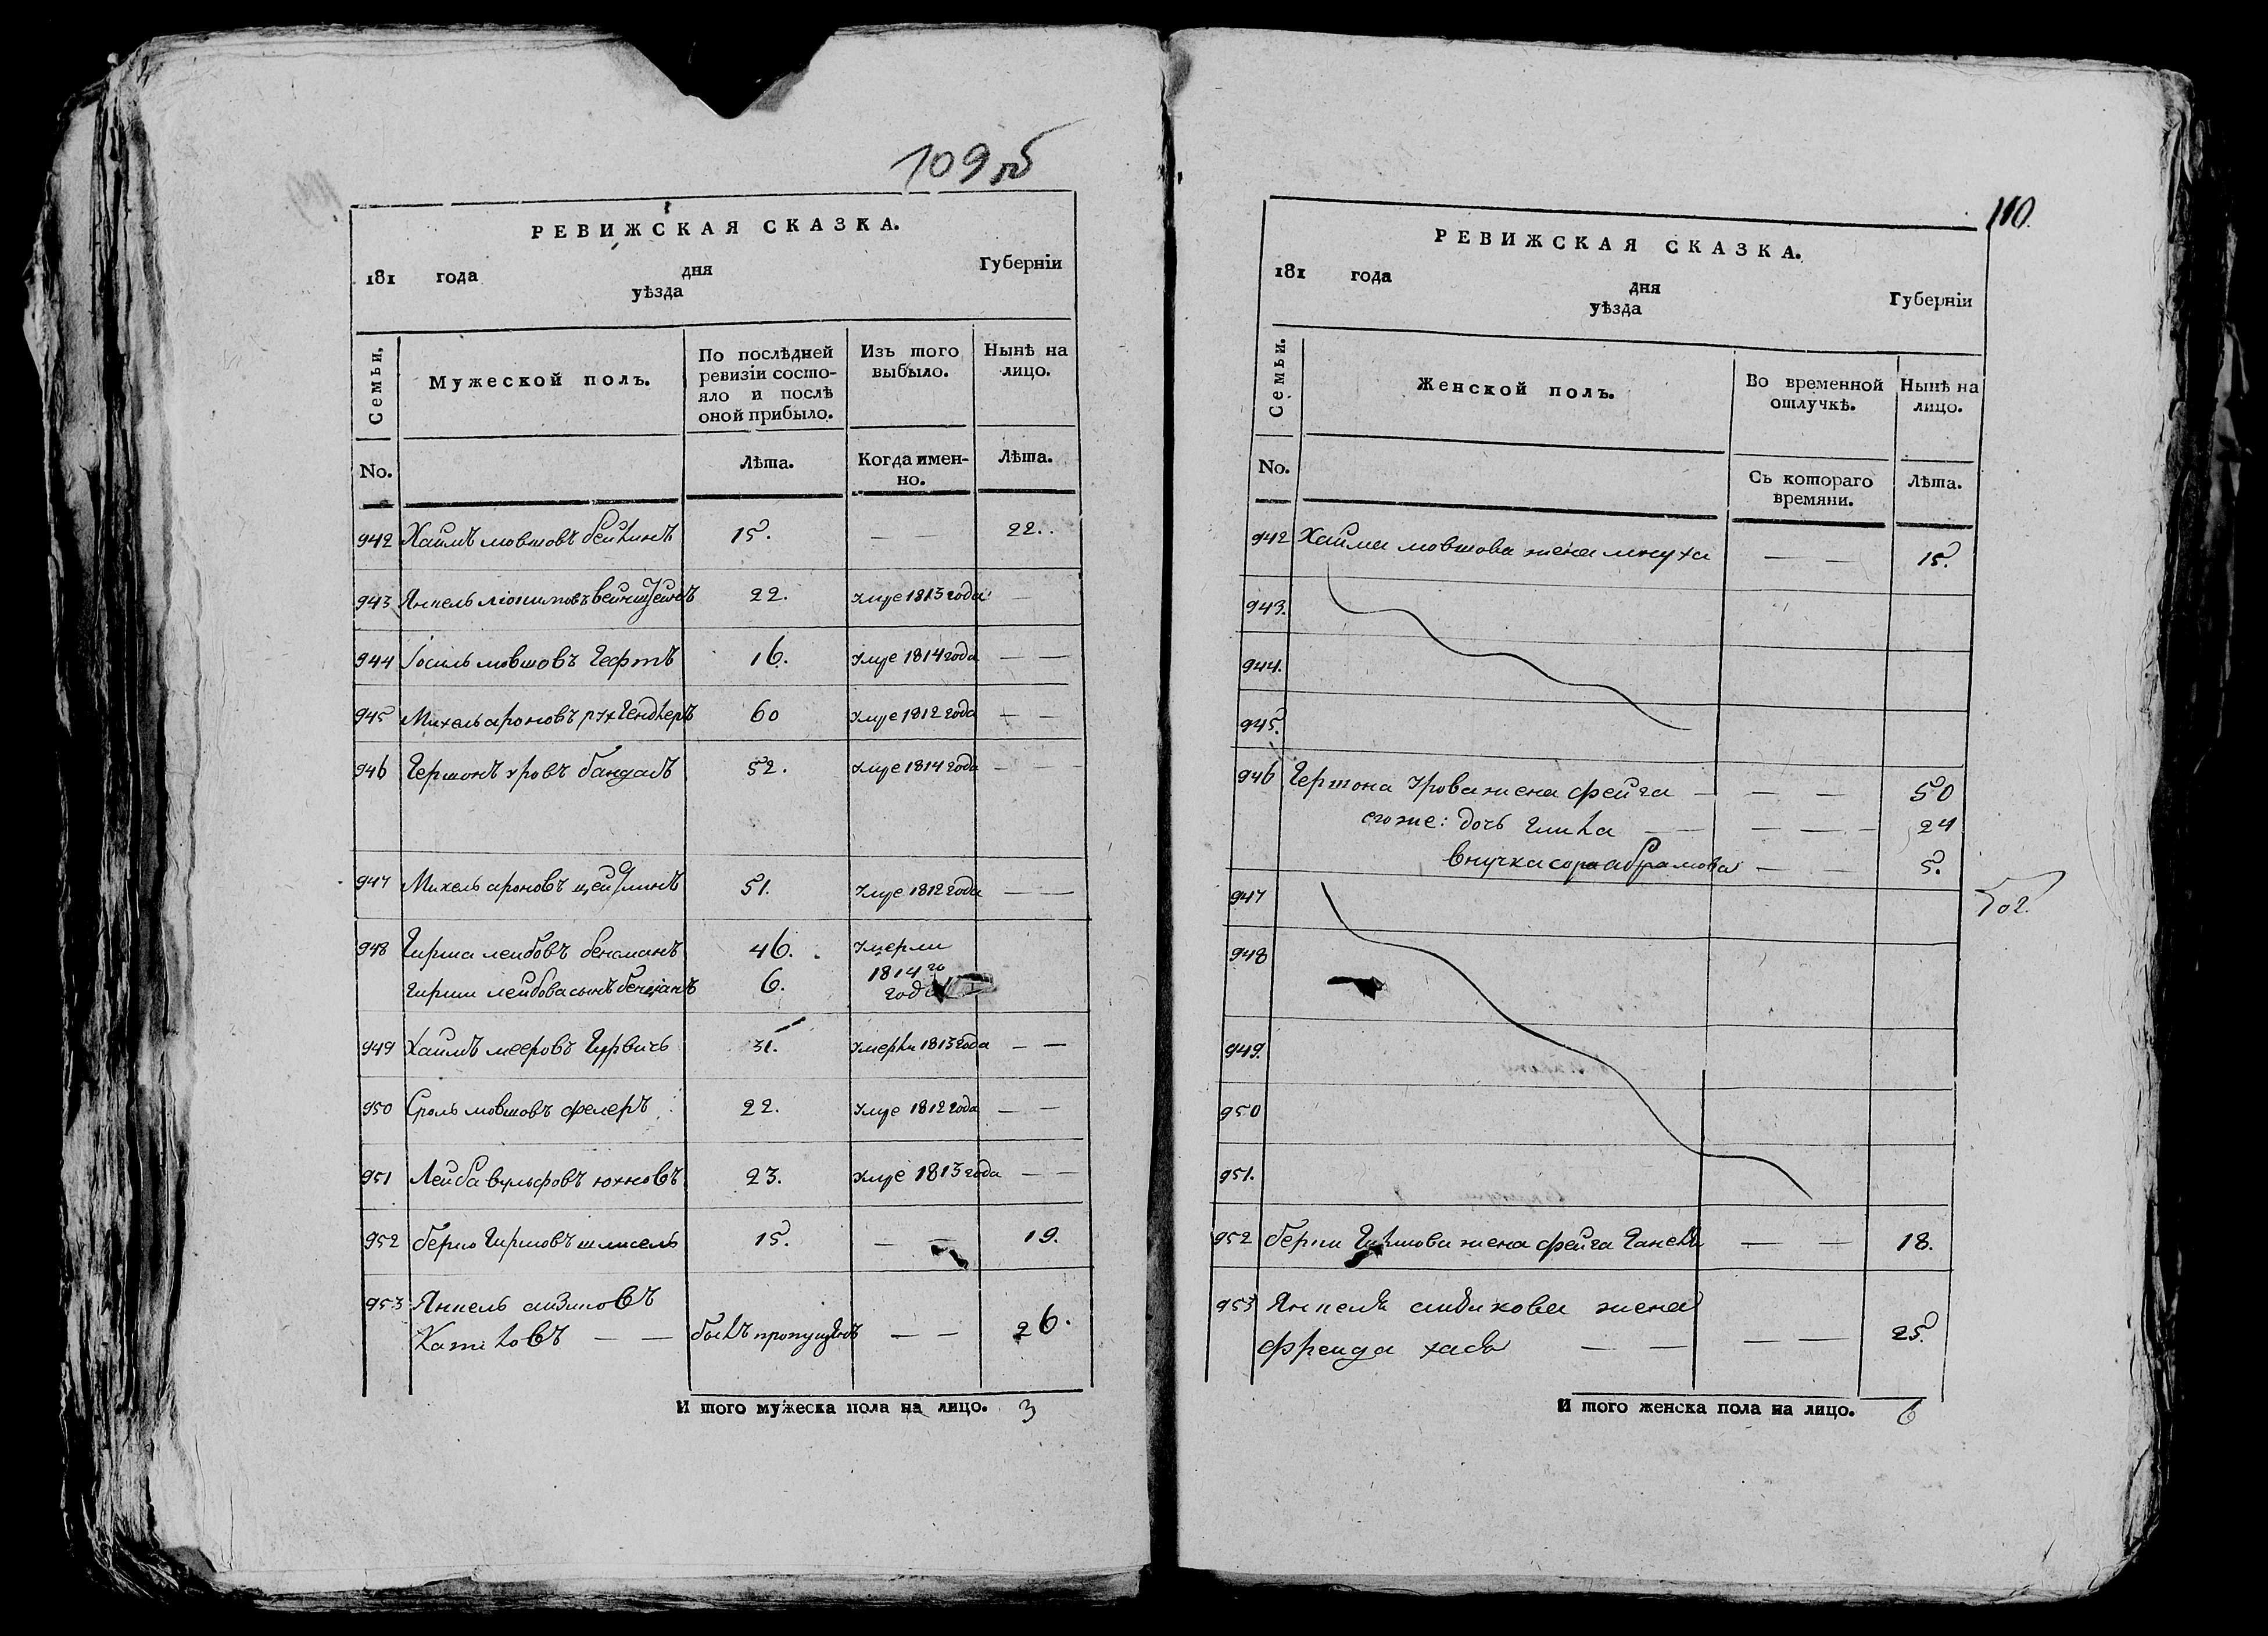 109 об
РЕВИЖСКАЯ СКАЗКА.
181 года дня Губернїи
уѣзда
Семьи.
Мужеской полъ.
По послѣдней ревизїи состояло и послѣ оной прибыло.
Изъ того выбыло.
Нынѣ на лицо.
No.
Лѣта.
Когда именно.
Лѣта.
942 Хаимъ мовшовъ 15. — — 22.
943 Янкель 22. Умре 1813 года —
944 Іосиль мовшовъ Гефтъ 16. Умре 1814 года — —
945 Михель ароновъ 60 Умре 1812 года — —
946 Гершонъ уровъ 52. Умре 1814 года — —
947 Михель ароновъ цейтлинъ 51. Умре 1812 года — —
948 Гирша лейбовъ бенсманъ 46. Умерли
гирши лейбова сынъ 6. 1814 го
года
949 Хаимъ мееровъ Гурвичь 31. Умерли 1813 года — —
950 Сроль мовшовъ фелеръ 22. Умре 1812 года — —
951 Лейба вульфовъ юхновъ 23. Умре 1813 года — —
952 берко Гиршовъ 15. — — 19.
953 Янкель аизиковъ
— — былъ пропущенъ — — 26.
И того мужеска пола на лицо. 3
110.
РЕВИЖСКАЯ СКАЗКА.
181 года дня Губернїи
уѣзда
Семьи.
Женской полъ.
Во временной отлучкѣ.
Нынѣ на лицо.
No.
Съ котораго времяни.
Лѣта.
942 Хайма мовшова жена мнуха — — 15.
943.
944.
945.
946 Гершона Урова жена фейга — — — 50
его же: дочь — — — 24
внучка сора абрамова — — 5.
947
948
949.
950
951.
952 берки Гиршова жена фейга — — 18.
953 Янкеля аизикова жена
фрейда хася — — — — 25.
И того женска пола на лицо. 6